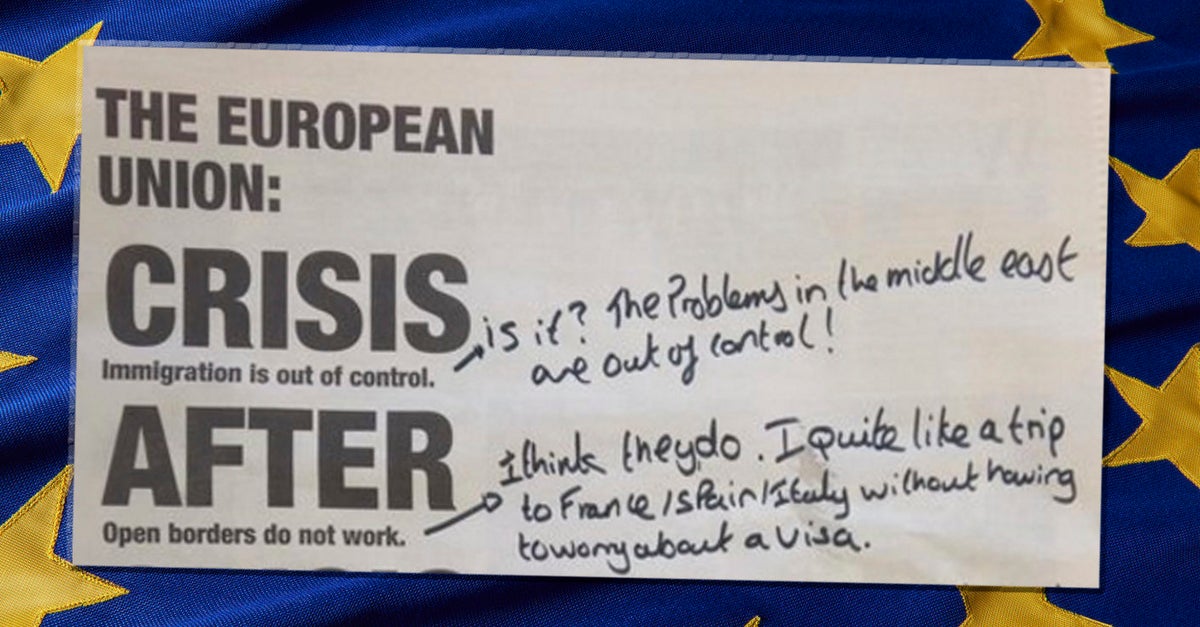 THE EUROPEAN
UNION:
CRISIS
Immigration is out of control.
is it? The Problems in the middle east
are out of control!
AFTER
Open borders do not work.
I think they do. I quite like a trip
to France/Spain/Italy without having
to worry about a visa.